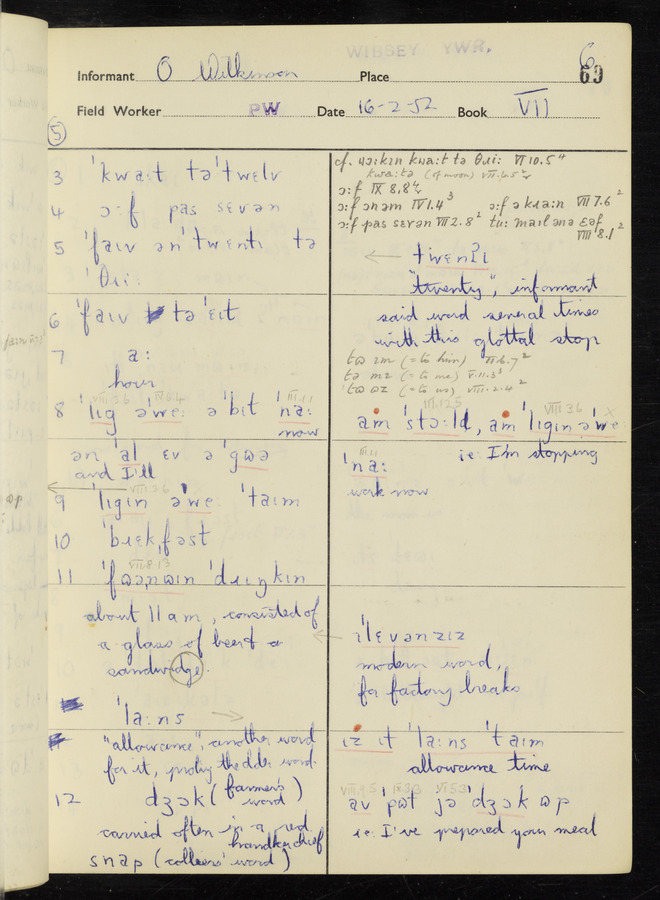 WIBSEY YWR.
6
Informant O Wilkinson Place 69
Field Worker PW Date 16-2-52 Book VII
5
3 ˈkwaːt təˈtwɛlv
4 ɔːf pas sɛvən
5 ˈfaɪv ənˈtwɛntɪ tə
ˈθɾiː
6 ˈfaɪv təˈɛɪt
7 aː
hour
8 ˈlɪg əˈweː ə ˈbɪt ˈnaː
now
ən ˈal ɛv ə ˈgʊə
and I'll
9 ˈlɪgɪn əˈweː ˈtaɪm
10 ˈbɹɛkfəst
11 ˈfʊənʊɪn ˈdɹɪŋkɪn
about 11 am, consisted of
a glass of beer & a
sandwidge
ˈlaːns
"allowance", another word
for it, probly the older word.
12 dʒɔk (farmer's word)
carried often in a red
handkerchief
snap (colliers' word)
cf. wəːkɪn kwaːt tə θɾiː VI 10.5⁴
kwaːtə (of moon) VII.6.5²
ɔːf IX 8,8⁴
ɔːf ənəm IV 1.4³ ɔːf ə kɹaːn VII 7.6²
ɔːf pas sɛvən VII 2.8² tuː maɪl ənə ɛəf VIII 8.1²
twɛnʔɪ
"twenty", informant
said word several times
with this glottal stop
tə ɪm (= to him) II.6.7²
tə mɪ (= to me) V.11.3³
tə əz (= to us) VIII.2.4²
III.12.5 VIII 3.6
am ˈstɔːld, am ˈlɪgɪn əˈweː
III.11
ˈnaː ie. I'm stopping
work now
ɪˈlɛvənzɪz
modern word,
for factory breaks
ɪz ɪt ˈlaːns ˈtaɪm
allowance time
av ˈpʊt jə ˈdʒɔk ʊp
ie. I've prepared your meal